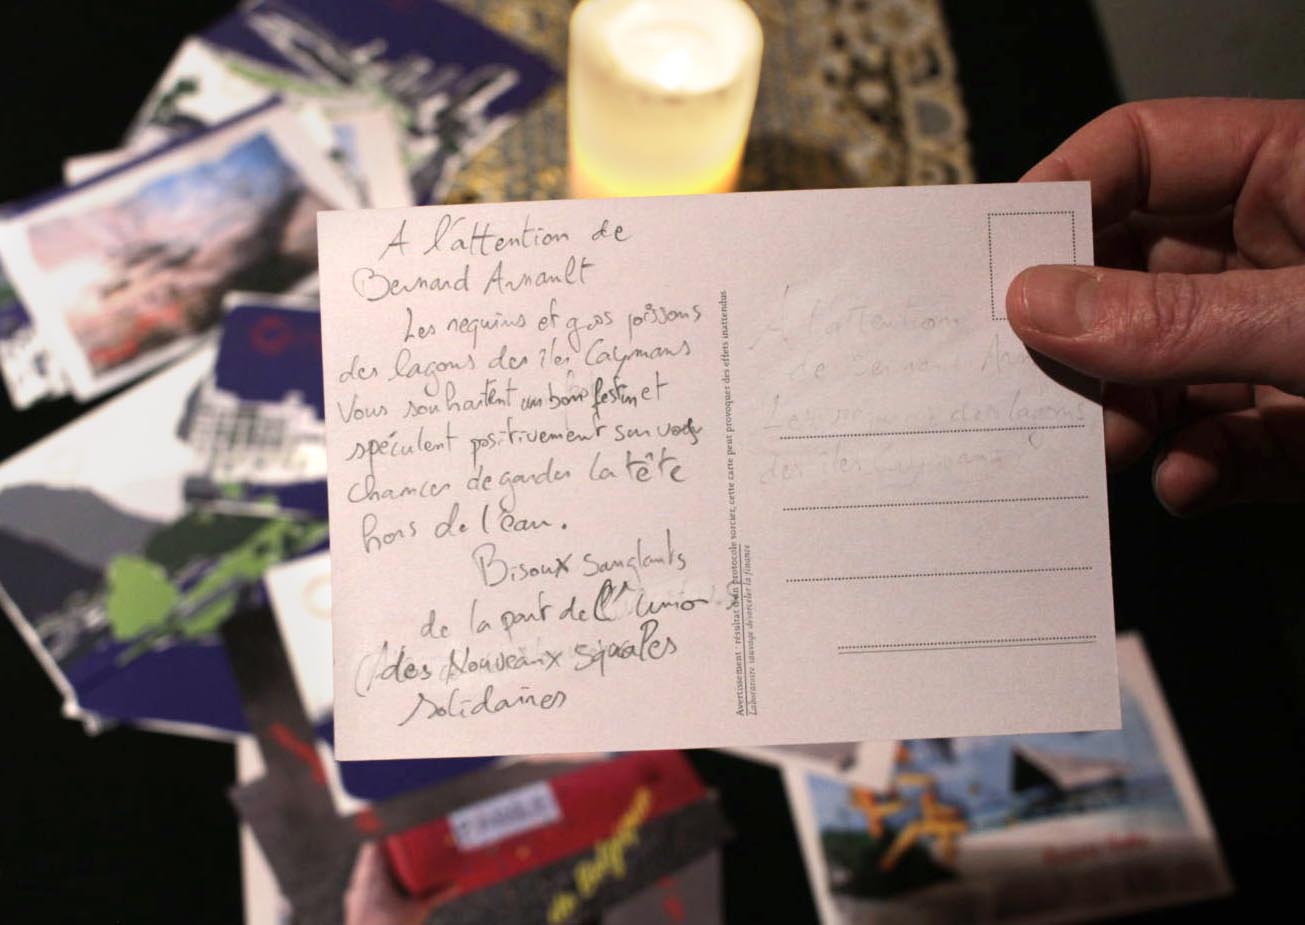 A l'attention de
Bernard Arnault
Les requins et gros poissons
des lagons des îles Caymans
Vous souhaitent un bon festin et
spéculent positivement sur vos
chances de garder la tête
hors de l'eau.
Bisoux sanglants
de la part de l'Union
des Nouveaux squales
solidaires
Avertissement : résultat d'un protocole sorcier, cette carte peut provoquer des effets inattendus
Laboratoire sauvage désorceler la finance
A l'attention
de Bernard
Les requins des lagons
des îles Caymans
de Belgique